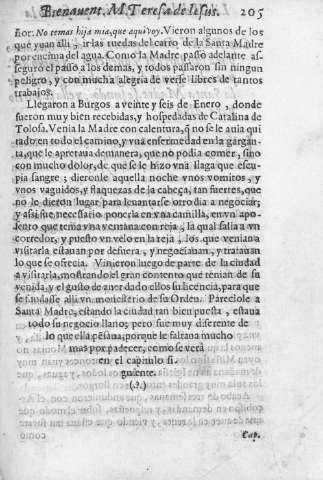 Bienauent. M. Teresa de Iesus. 205
ñor. No temas hija mia, que aqui voy. Vieron algunos de los
que yuan alli, ir las ruedas del carro de la Santa Madre
por encima del agua. Como la Madre passò adelante as-
seguró el passo a los demas, y todos passaron sin ningun
peligro, y con mucha alegria de verse libres de tantos
trabajos.
Llegaron a Burgos a veinte y seis de Enero, donde
fueron muy bien recebidas, y hospedadas de Catalina de
Tolosa. Venia la Madre con calentura, q̃ no se le auia qui
tado en todo el camino, y vna enfermedad en la gargan-
ta, que le apretaua demanera, que no podia comer, sino
con mucho dolor, de que se le hizo vna llaga que escu-
pia sangre; dieronle aquella noche vnos vomitos, y
vnos vaguidos, y flaquezas de la cabeça, tan fuertes, que
no le dieron lugar para leuantarse otro dia a negociar;
y assi fue necessario ponerla en vna camilla, en vn apo-
sento que tema vna ventana con reja, la qual salia a vn
corredor, y puesto vn velo en la reja, los que venian a
visitarla estauan por defuera, y negociauan, y tratauan
lo que se ofrecia. Vinieron luego de parte de la ciudad
a visitarla, mostrando el gran contento que tenian de su
venida, y el gusto de auer dado ellos su licencia, para que
se fundasse alli vn monesterio de su Orden. Pareciole a
Santa Madre, estando la ciudad tan bien puesta, estaua
todo su negocio llano; pero fue muy diferente de
lo que ella pẽsaua, porque le faltaua mucho
mas por padecer, como se verà
en el capitulo si-
guiente.
(.?.)
Cap.